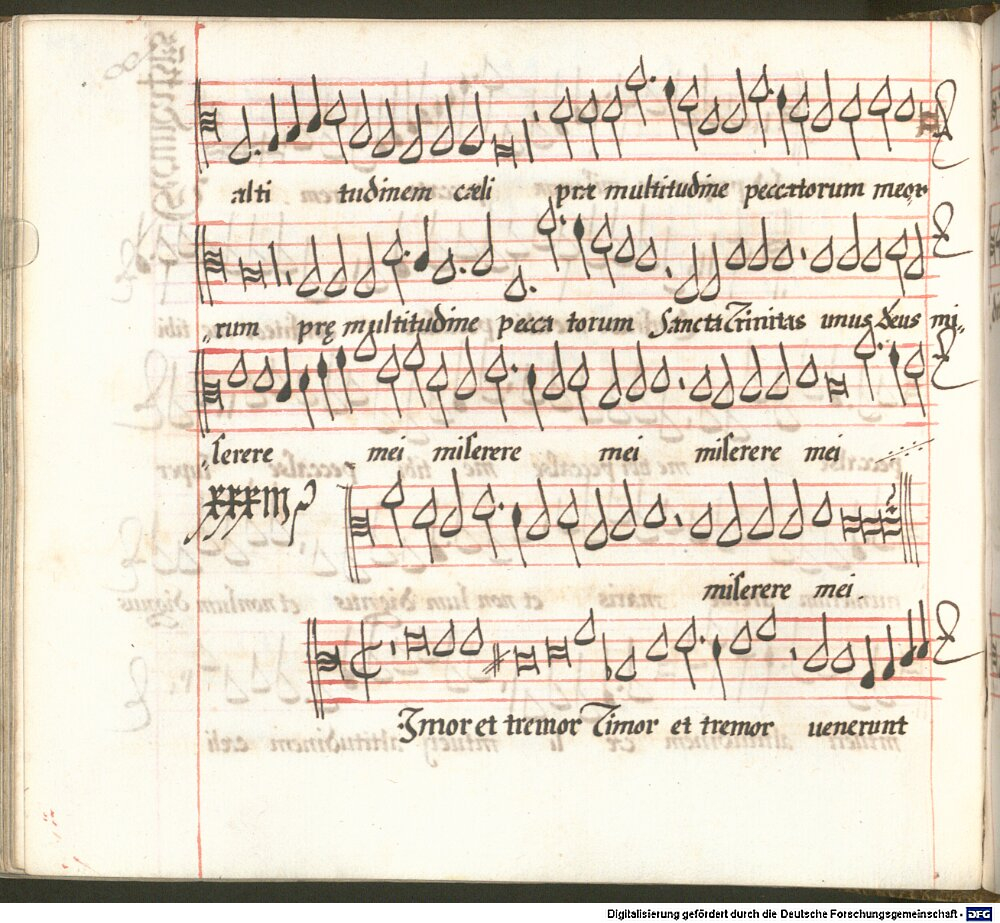 alti tudinem cæli præ multitudine peccatorum meor
rum prę multitudine pecca torum Sancta Trinitas unus Deus mi„
„serere mei miserere mei miserere mei
miserere mei.
Timor et tremor Timor et tremor uenerunt
Digitalisierung gefördert durch die Deutsche Forschungsgemeinschaft - DFG